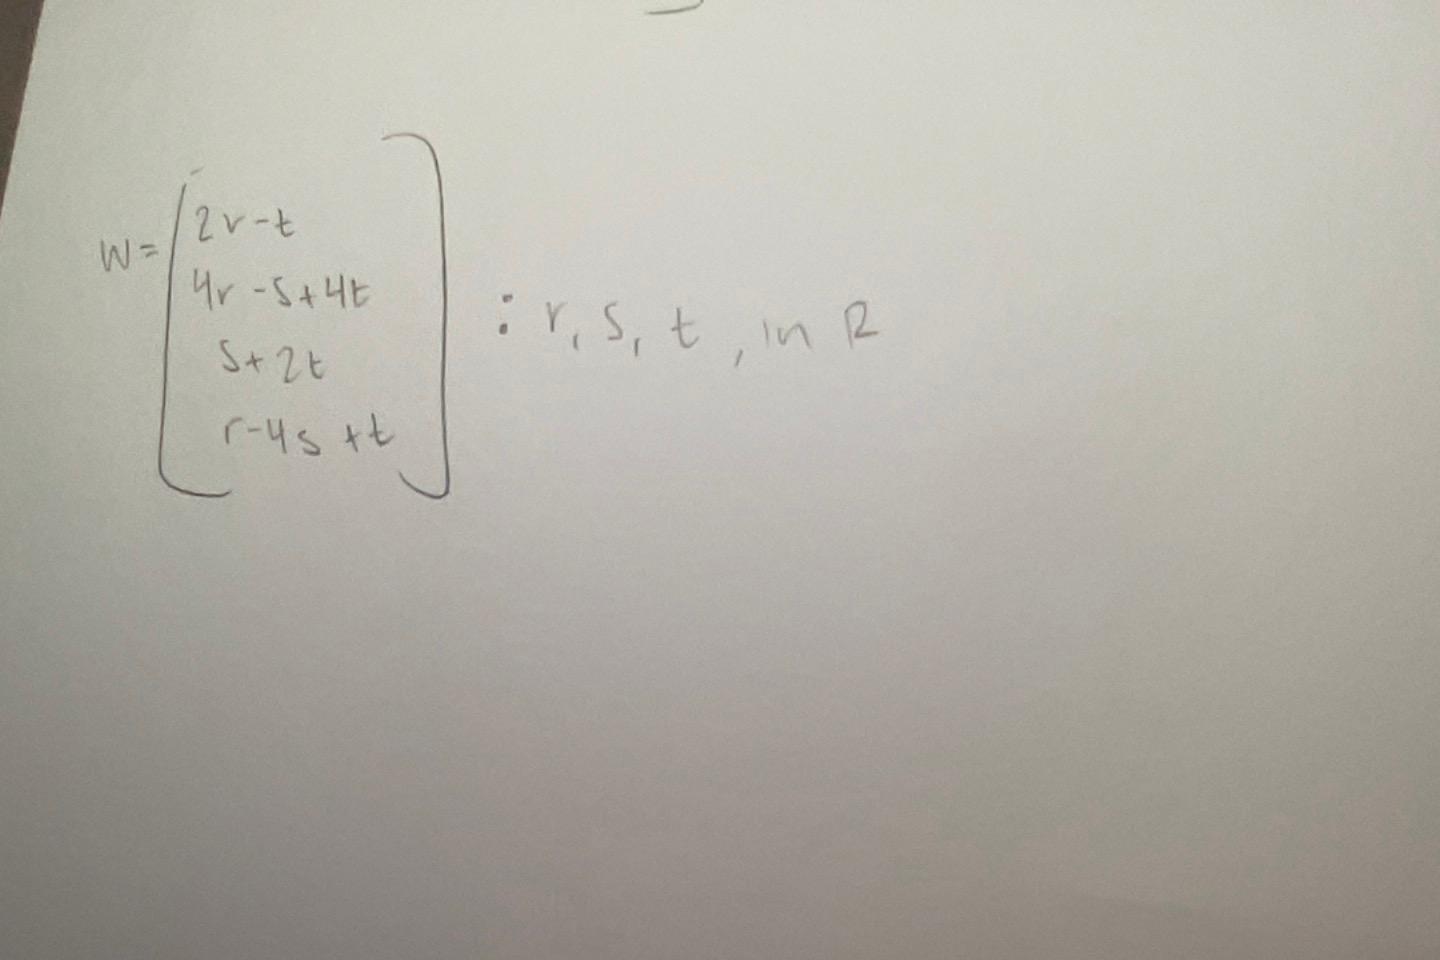 W=
2r-t
4r-s+4t
s+2t
r-4s+t
: r, s, t, in R